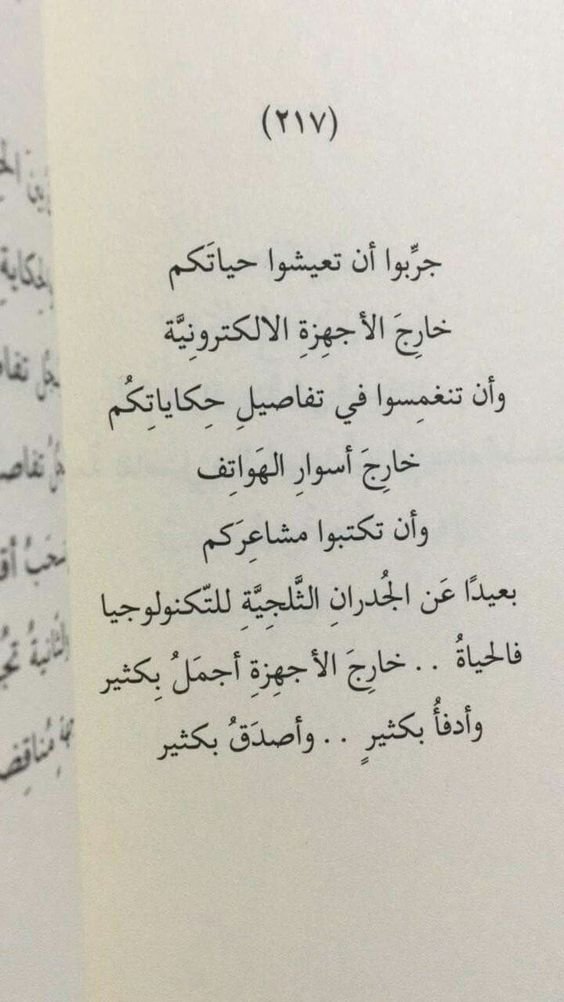 (٢١٧)
جرِّبوا أن تعيشوا حياتَكم
خارِجَ الأجهِزةِ الالكترونِيَّة
وأن تنغمِسوا في تفاصيلِ حِكاياتِكُم
خارِجَ أسوارِ الهَواتِف
وأن تكتبوا مشاعِرَكم
بعيدًا عَن الجُدرانِ الثَّلجِيَّةِ للتّكنولوجيا
فالحياةُ . . خارِجَ الأجهِزةِ أجمَلُ بِكثير
وأدفأُ بكثيرٍ . . وأصدَقُ بكثير